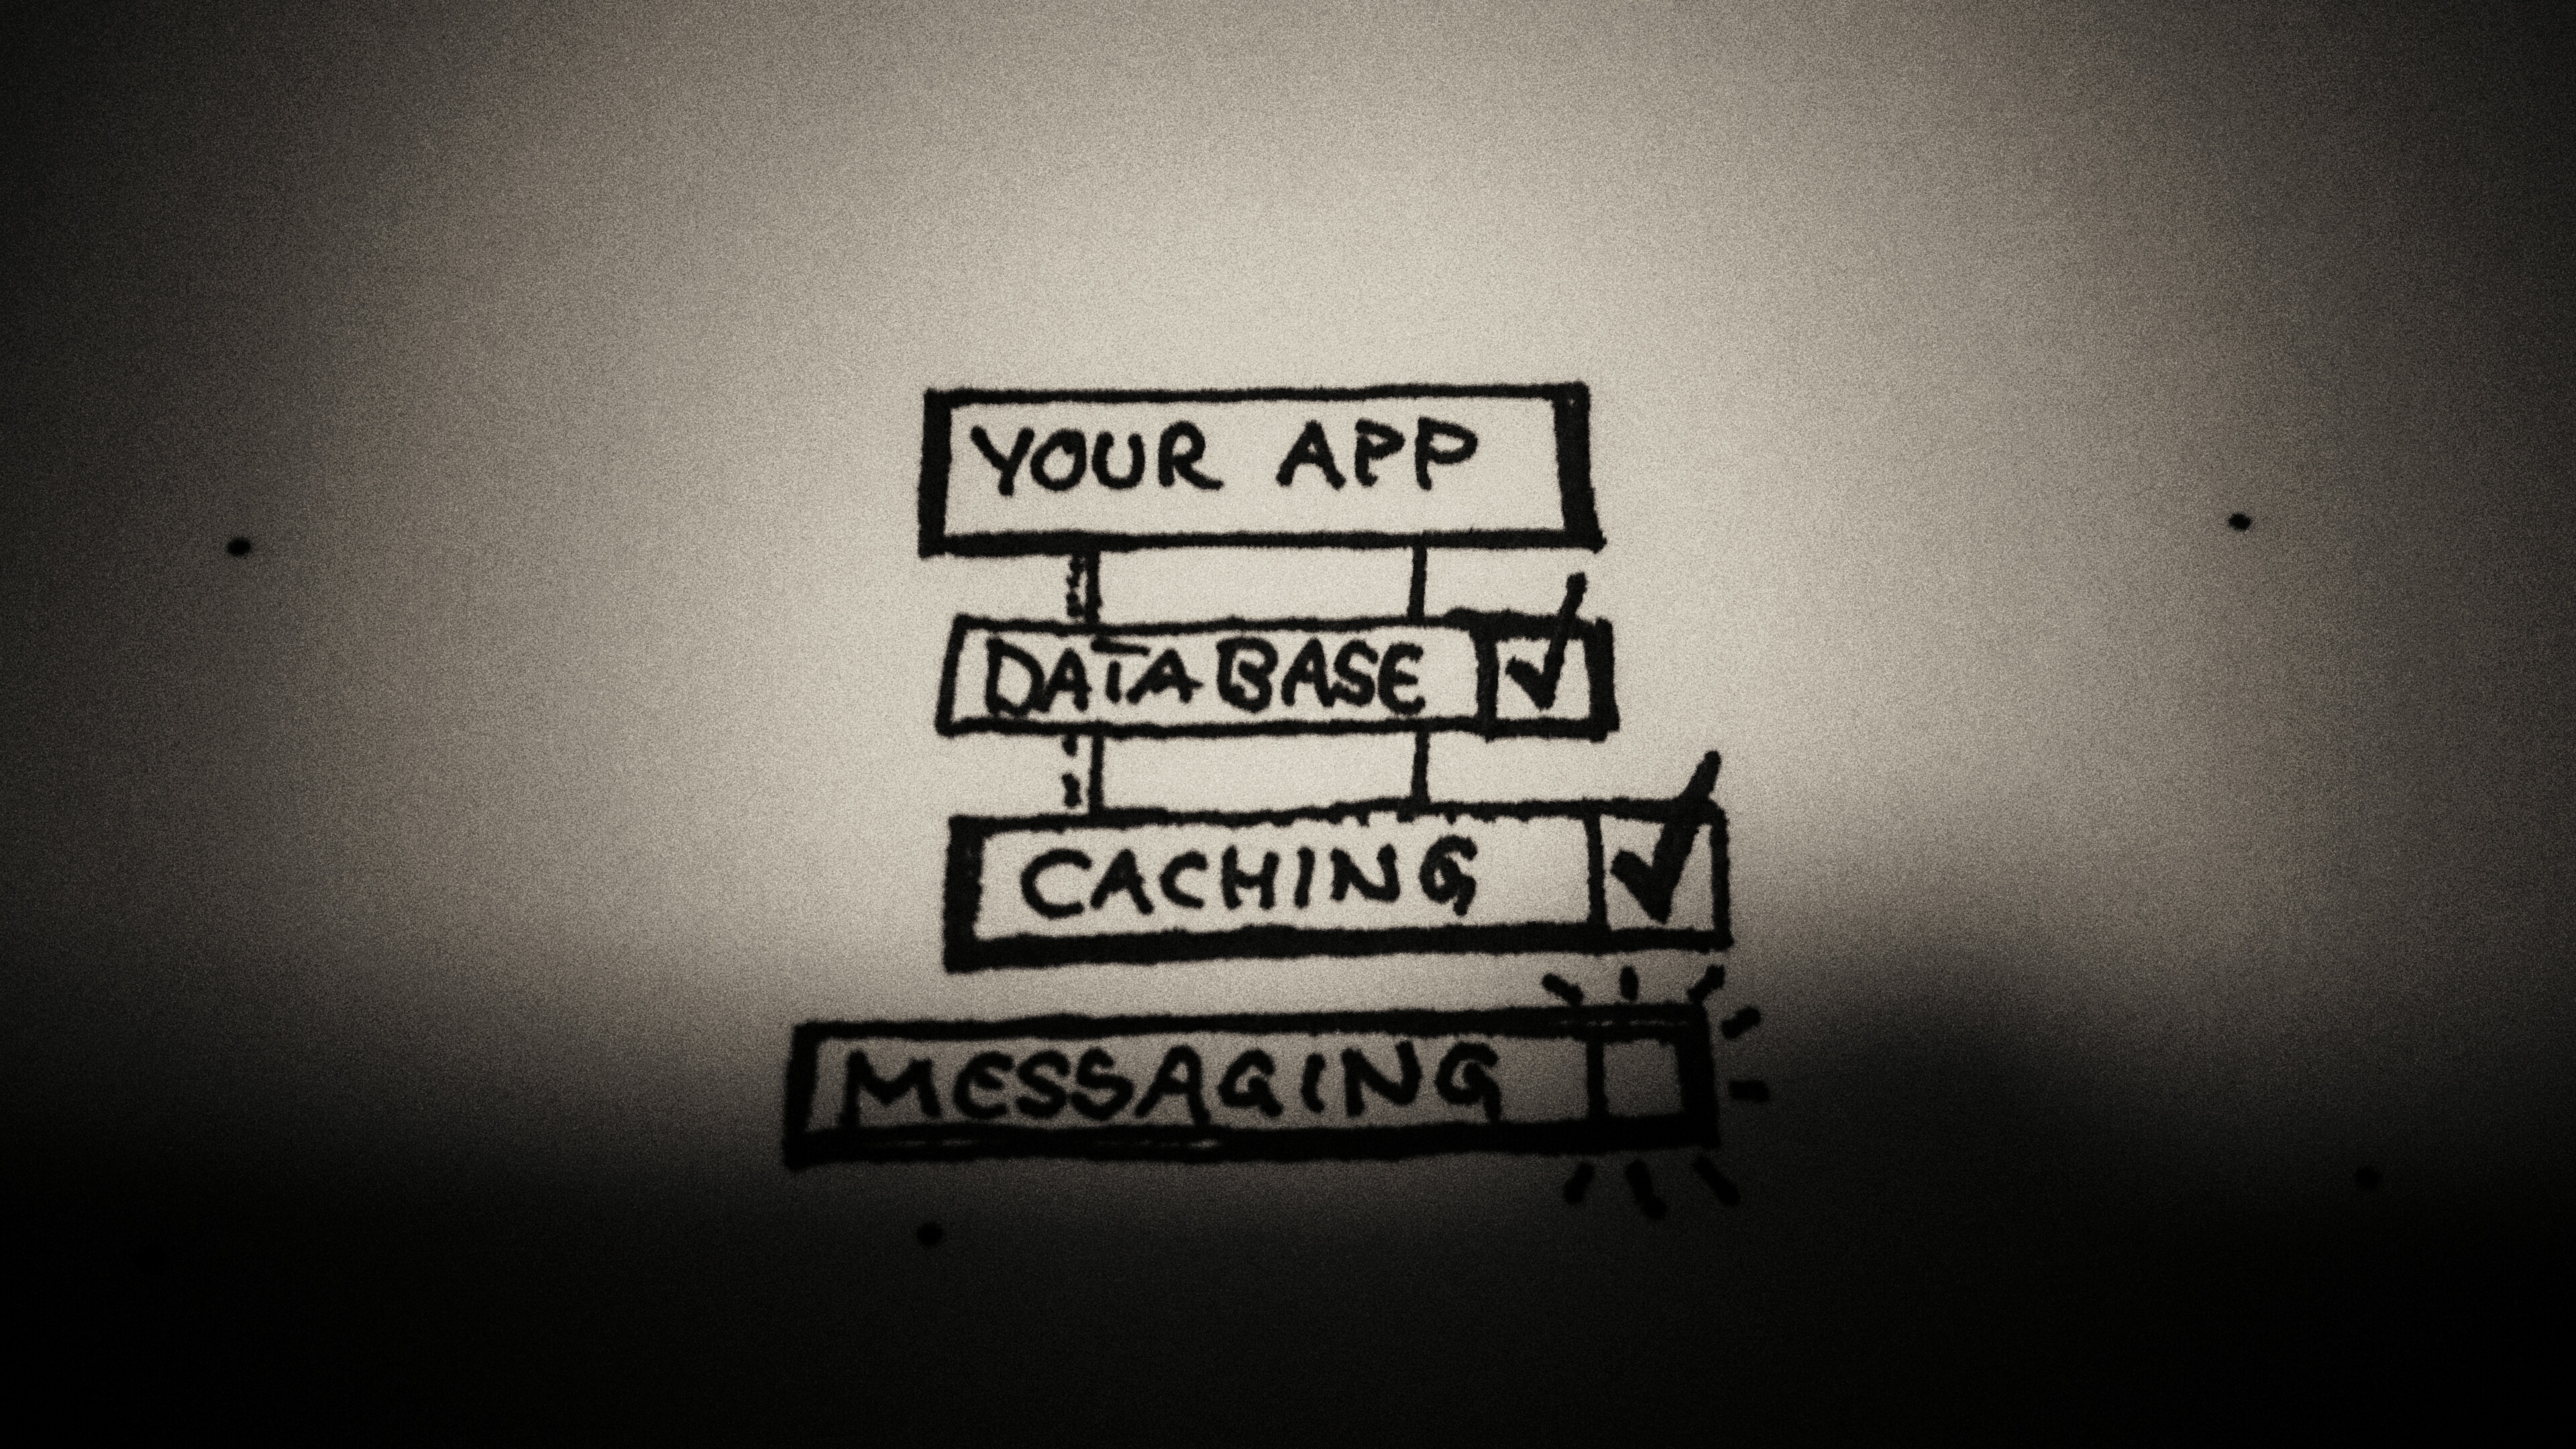 YOUR APP
DATABASE
CACHING
MESSAGING